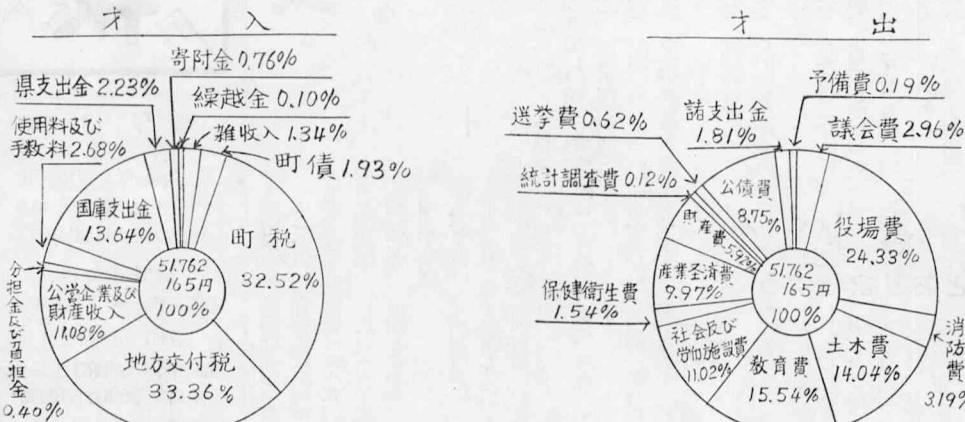 才入
寄附金 0.76%
県支出金 2.23%
繰越金 0.10%
使用料及び
手数料 2.68%
雑収入 1.34%
町債 1.93%
国庫支出金
13.64%
町税
32.52%
51.762
165円
100%
分担金及び負担金
0.40%
公営企業及び
財産収入
11.08%
地方交付税
33.36%
才出
予備費 0.19%
諸支出金
1.81%
選挙費 0.62%
議会費 2.96%
統計調査費 0.12%
公債費
8.75%
役場費
24.33%
財産費 5.92%
産業経済費
9.97%
51.762
165円
100%
保健衛生費
1.54%
社会及び
労働施設費
11.02%
教育費
15.54%
土木費
14.04%
消防費
3.19%